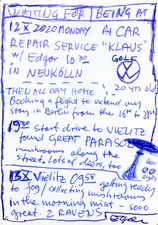 WAITING FOR BEING AT
12 X 2020 MONDAY at CAR
REPAIR SERVICE "KLAUS"
w/ Edgar 10 30 GOLF
in NEUKÖLLN
THEN ALL DAY HOME 20 yrs old
Booking a flight to extend my
stay in Berlin from the 16th to 21st
19 30 start drive to VIELITZ
found GREAT PARASOL
mushrooms along the
street. Lots of deers, too
13 X Vielitz 09 58 getting ready
to jog / collecting mushrooms
in the morning mist - sooo
great. 2 RAVENS